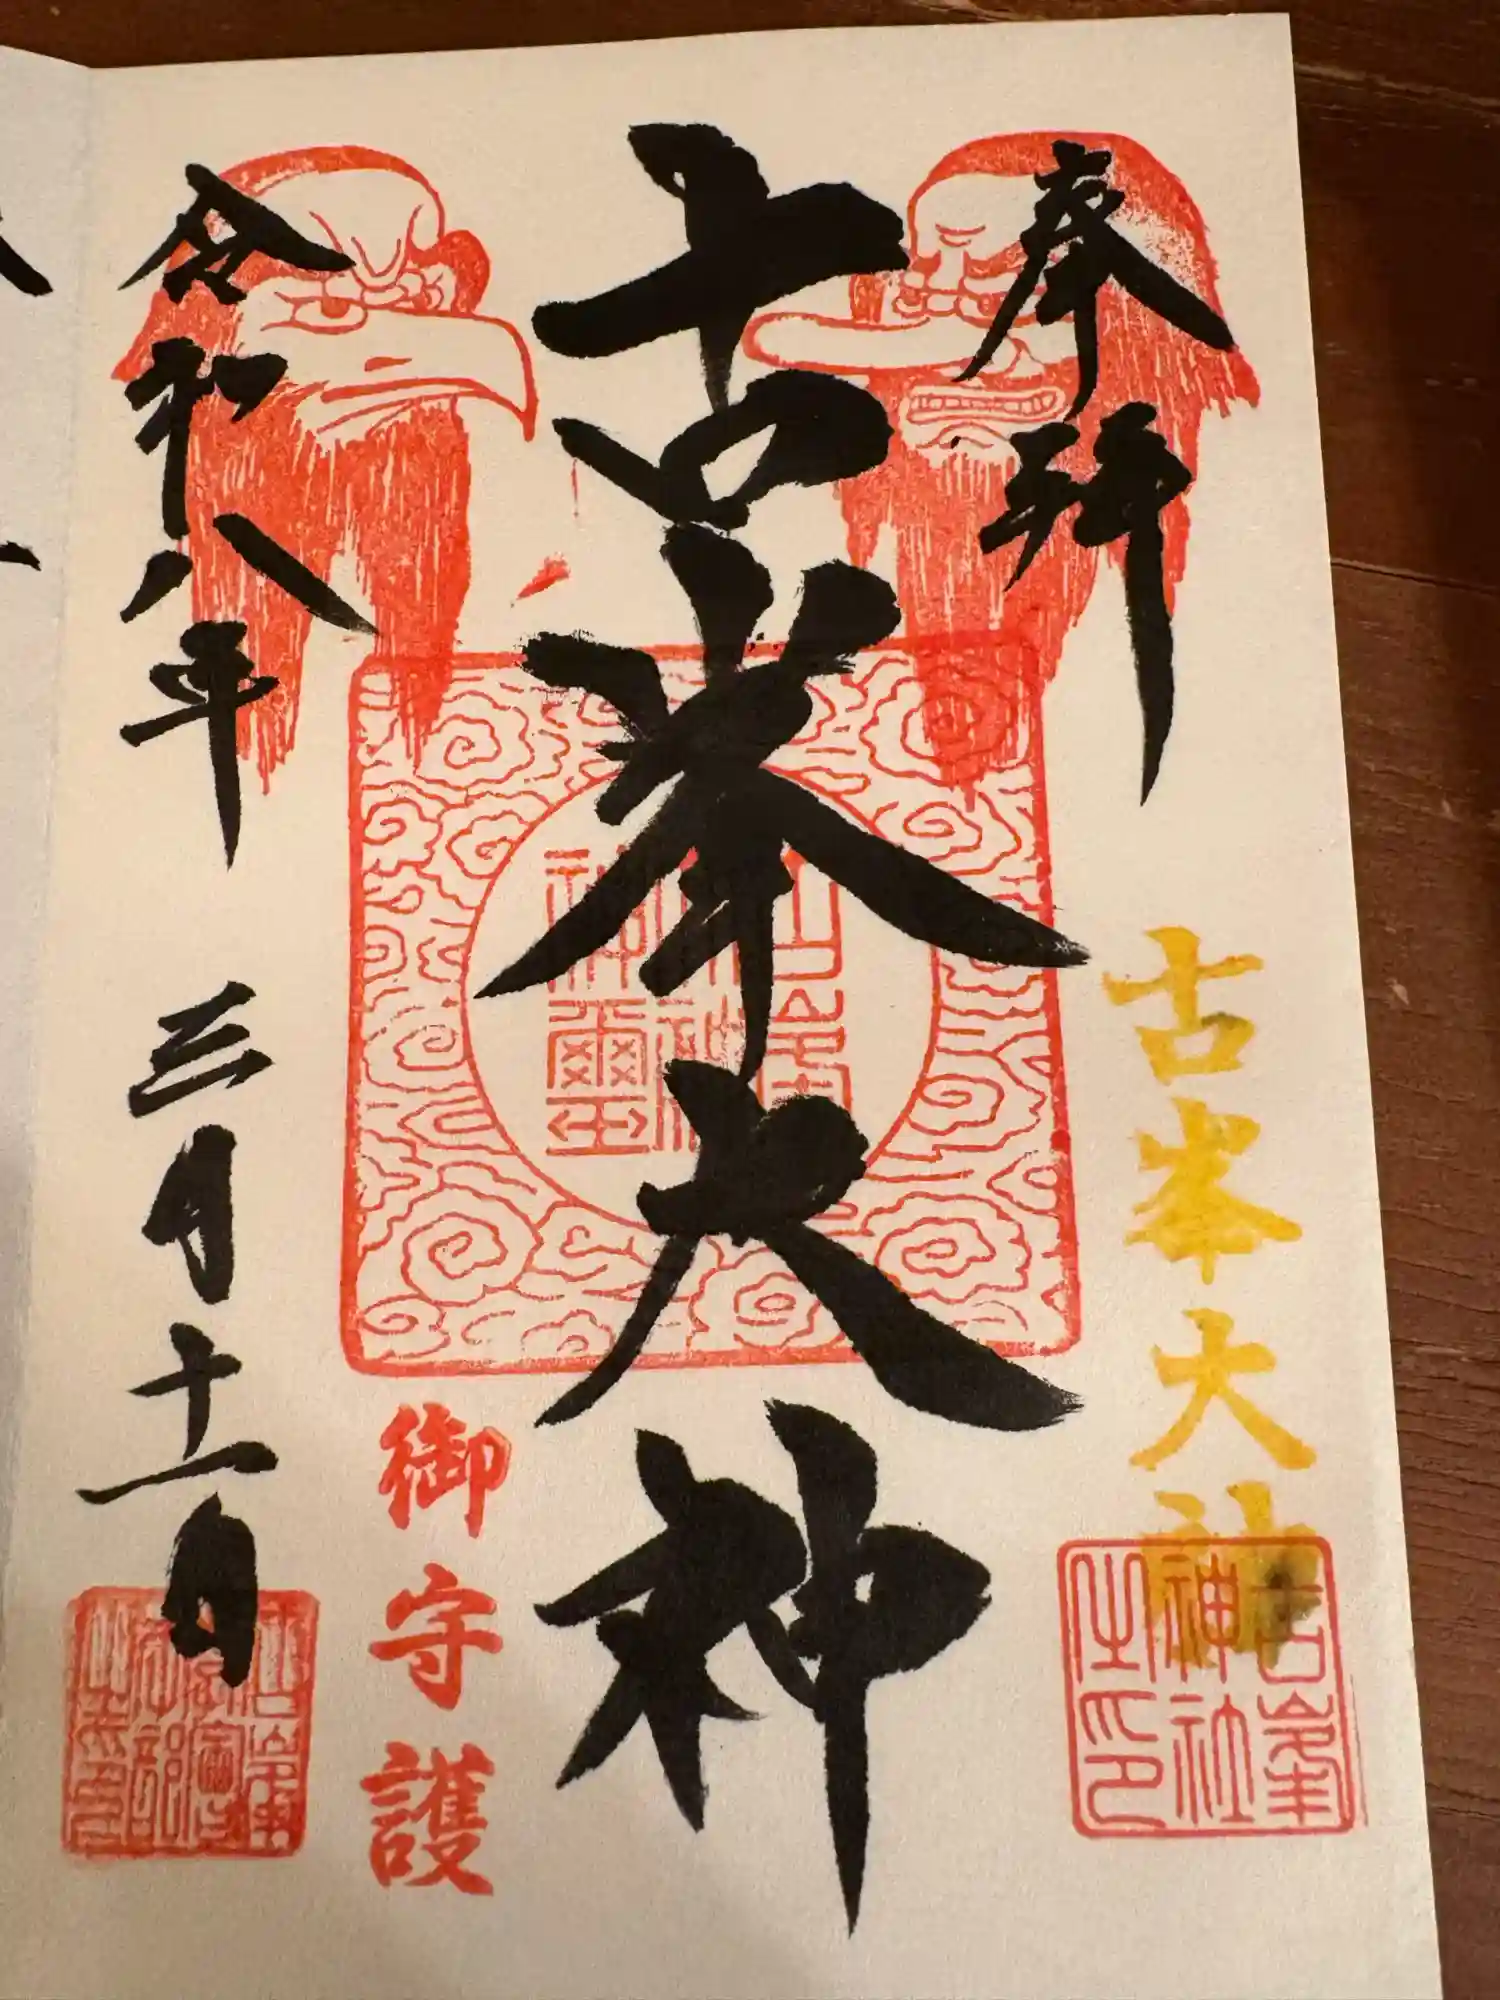 奉拝
古峯大神
古峯神社之印
古峯大神
御守護
令和八年 三月十一日